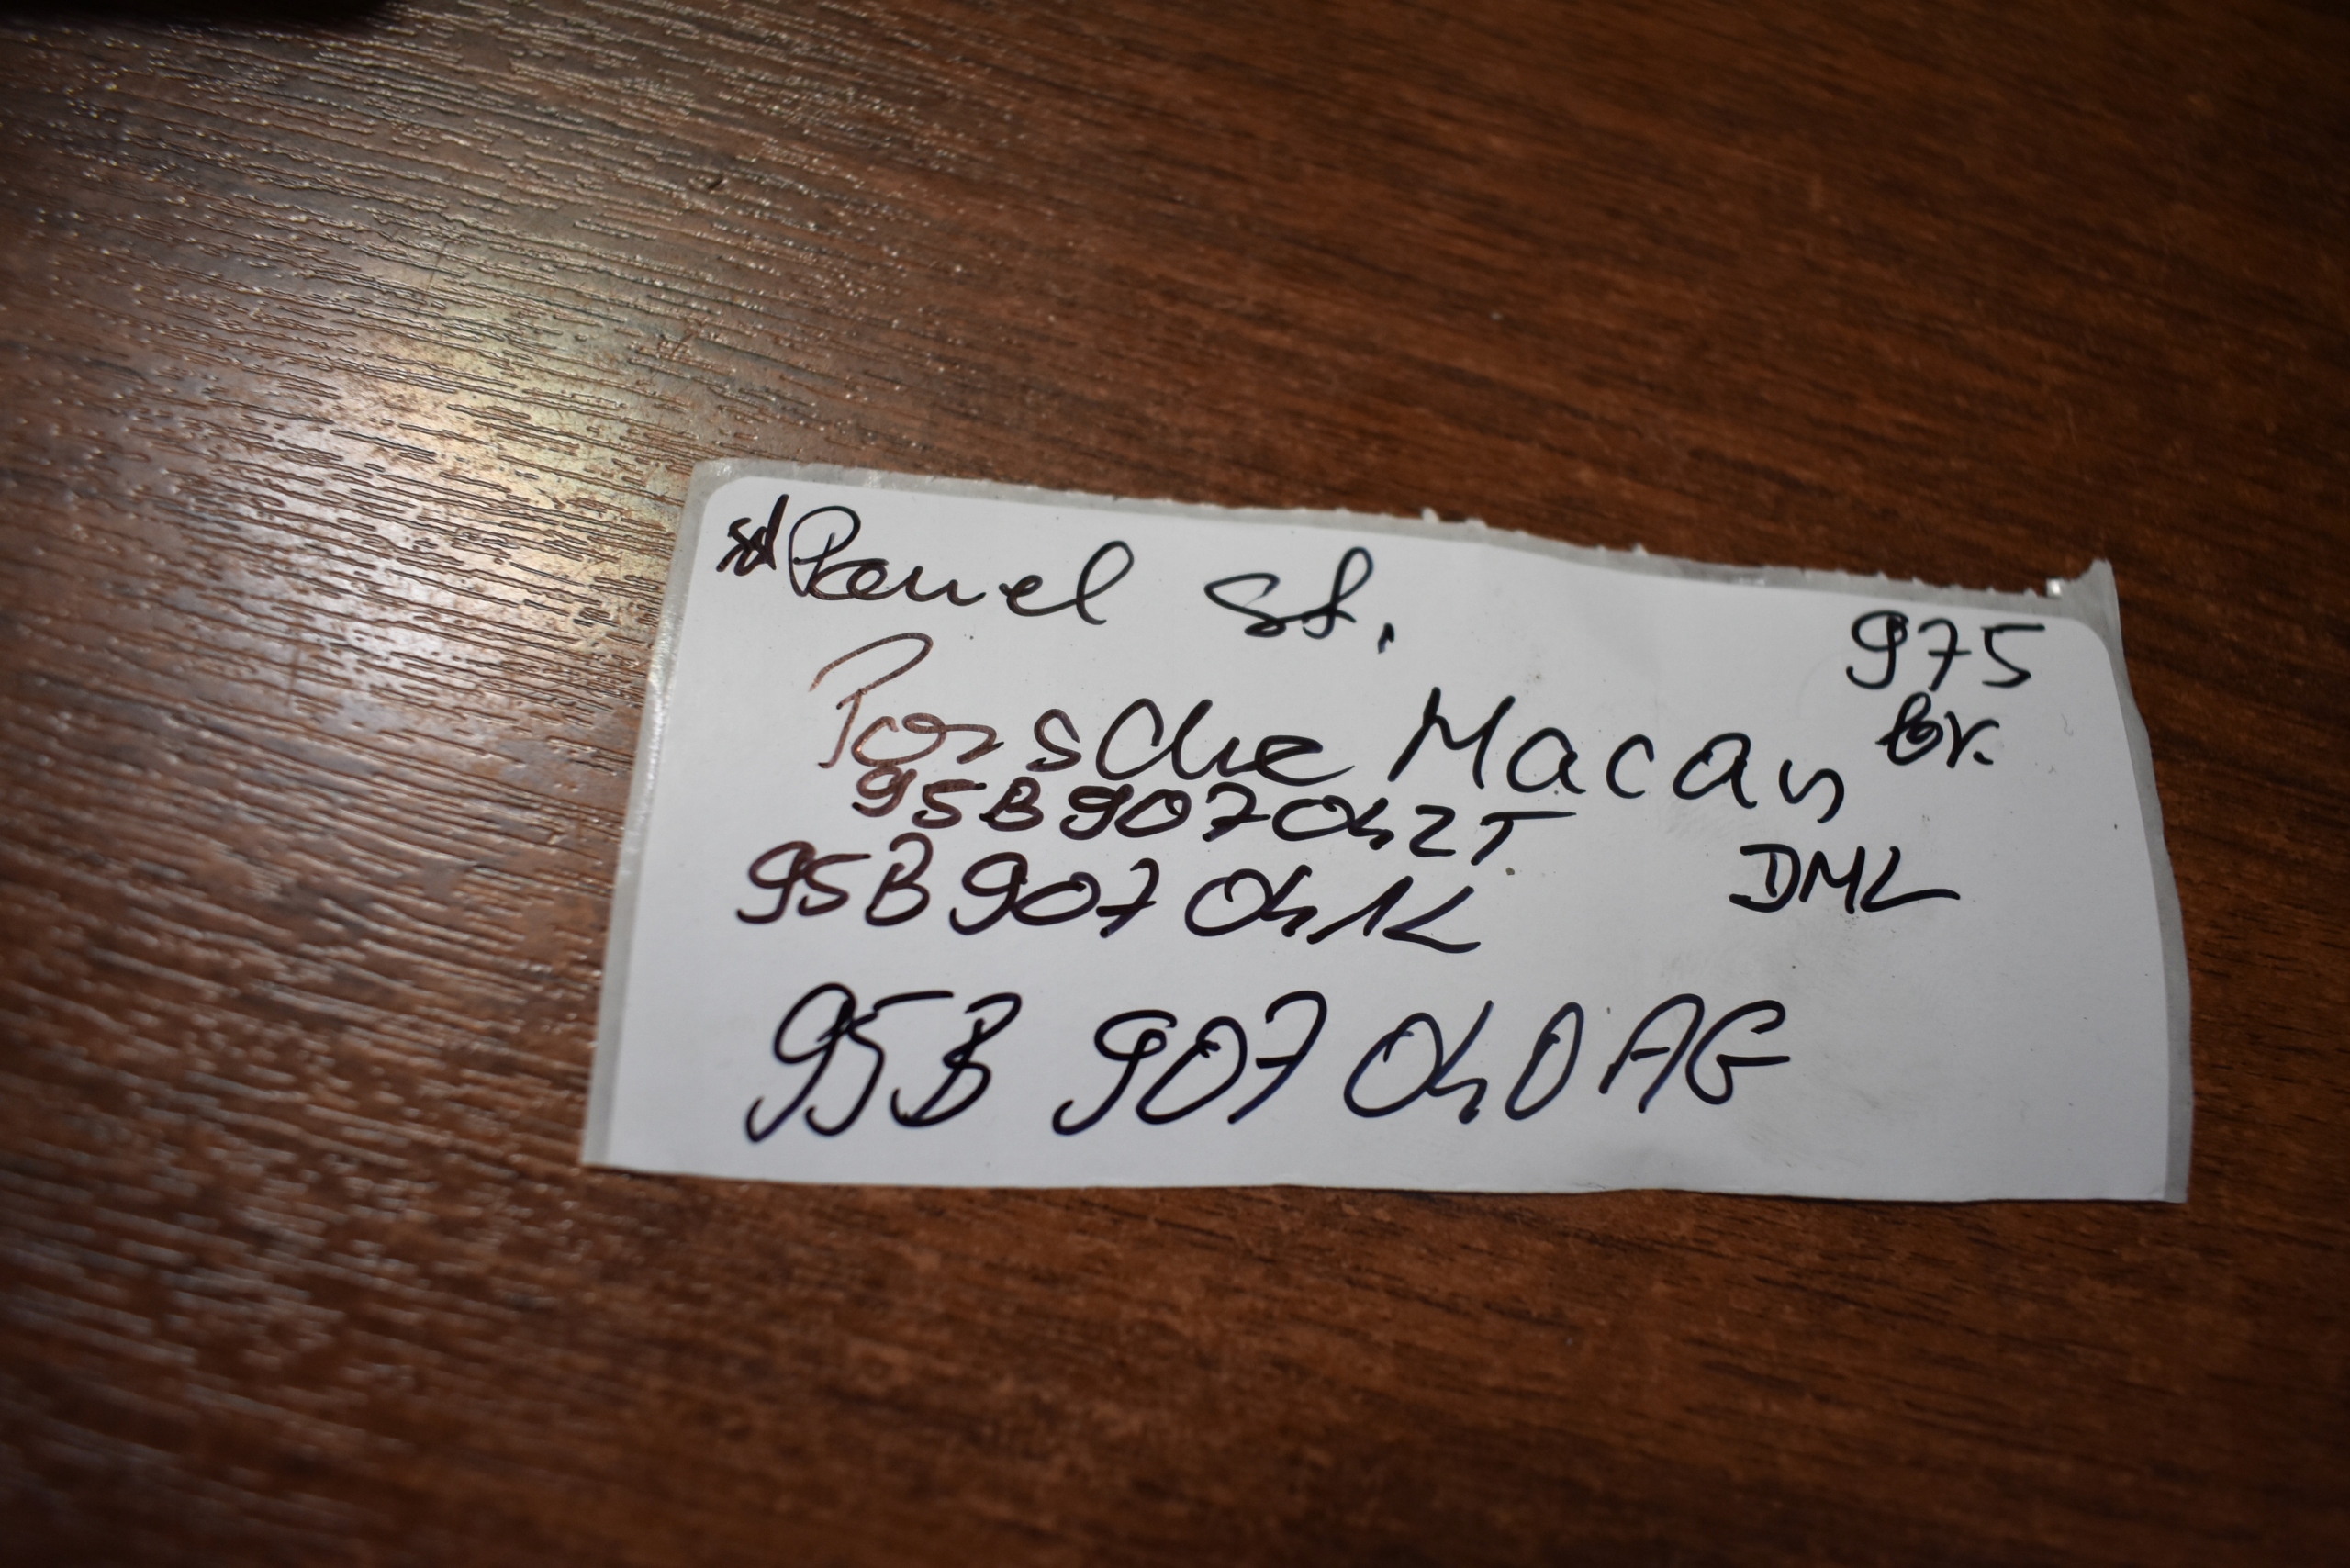 Panel St.
975
Porsche Macan
br.
95B907042T
DML
95B907041L
95B 907 040AG